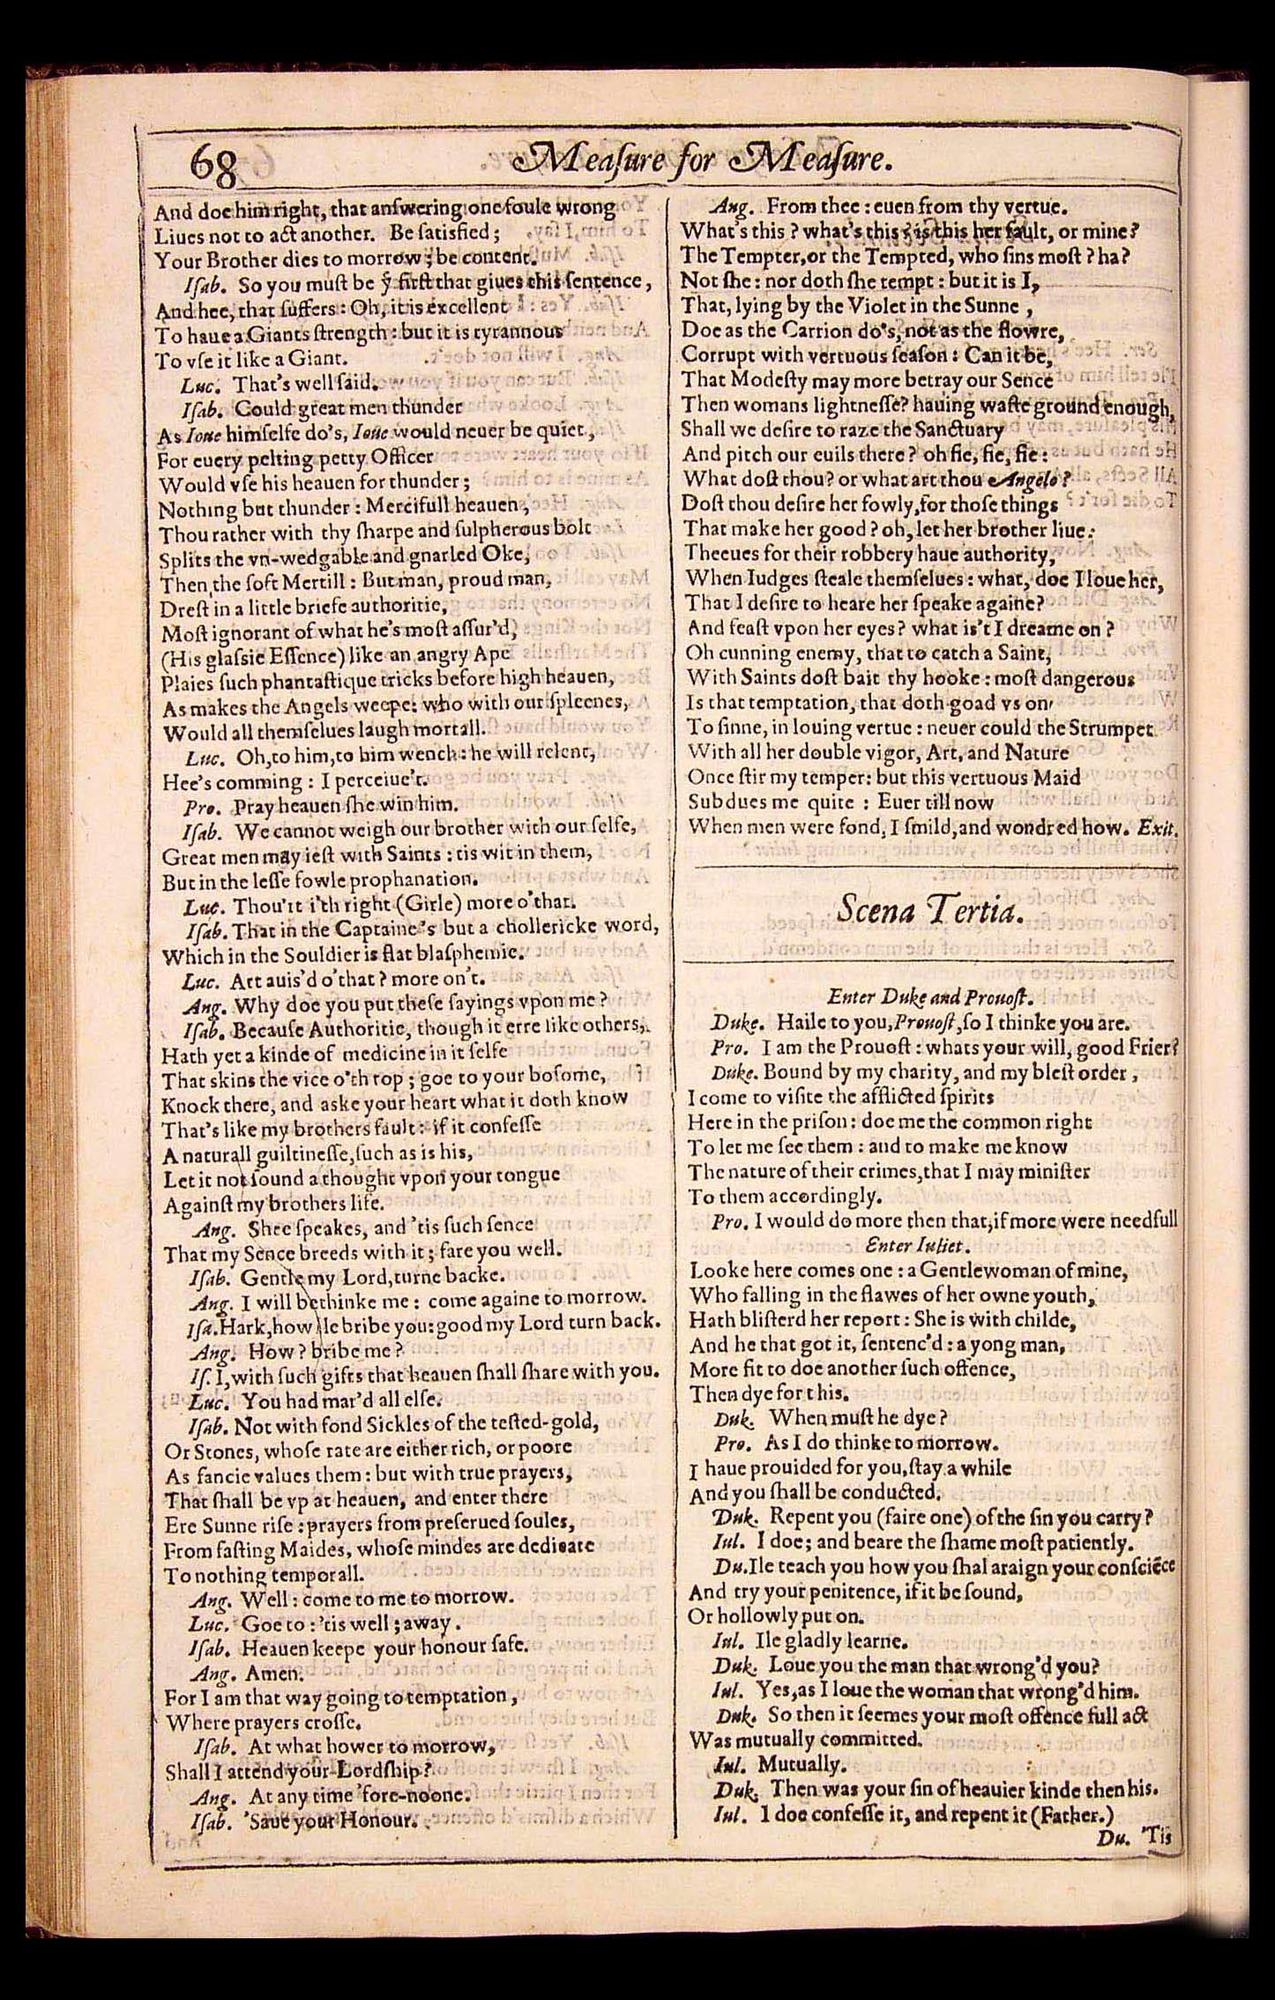 68
Meaſure for Meaſure.
And doe him right, that anſwering one foule wrong
Liues not to act another. Be ſatisfied;
Your Brother dies to morrow; be content.
Iſab. So you muſt be ẏ firſt that giues this ſentence,
And hee, that ſuffers: Oh, it is excellent
To haue a Giants ſtrength: but it is tyrannous
To vſe it like a Giant.
Luc. That's well ſaid.
Iſab. Could great men thunder
As Ioue himſelfe do's, Ioue would neuer be quiet,
For euery pelting petty Officer
Would vſe his heauen for thunder;
Nothing but thunder: Mercifull heauen,
Thou rather with thy ſharpe and ſulpherous bolt
Splits the vn-wedgable and gnarled Oke,
Then the ſoft Mertill: But man, proud man,
Dreſt in a little briefe authoritie,
Moſt ignorant of what he's moſt aſſur'd,
(His glaſſie Eſſence) like an angry Ape
Plaies ſuch phantaſtique tricks before high heauen,
As makes the Angels weepe: who with our ſpleenes,
Would all themſelues laugh mortall.
Luc. Oh, to him, to him wench: he will relent,
Hee's comming: I perceiue't.
Pro. Pray heauen ſhe win him.
Iſab. We cannot weigh our brother with our ſelfe,
Great men may ieſt with Saints: tis wit in them,
But in the leſſe fowle prophanation.
Luc. Thou'rt i'th right (Girle) more o'that.
Iſab. That in the Captaine's but a chollericke word,
Which in the Souldier is flat blaſphemie.
Luc. Art auis'd o'that? more on't.
Ang. Why doe you put theſe ſayings vpon me?
Iſab. Becauſe Authoritie, though it erre like others,
Hath yet a kinde of medicine in it ſelfe
That skins the vice o'th top; goe to your boſome,
Knock there, and aske your heart what it doth know
That's like my brothers fault: if it confeſſe
A naturall guiltineſſe, ſuch as is his,
Let it not ſound a thought vpon your tongue
Againſt my brothers life.
Ang. Shee ſpeakes, and 'tis ſuch ſence
That my Sence breeds with it; fare you well.
Iſab. Gentle my Lord, turne backe.
Ang. I will bethinke me: come againe to morrow.
Iſa. Hark, how Ile bribe you: good my Lord turn back.
Ang. How? bribe me?
Iſ. I, with ſuch gifts that heauen ſhall ſhare with you.
Luc. You had mar'd all elſe.
Iſab. Not with fond Sickles of the teſted-gold,
Or Stones, whoſe rate are either rich, or poore
As fancie values them: but with true prayers,
That ſhall be vp at heauen, and enter there
Ere Sunne riſe: prayers from preſerued ſoules,
From faſting Maides, whoſe mindes are dedicate
To nothing temporall.
Ang. Well: come to me to morrow.
Luc. Goe to: 'tis well; away.
Iſab. Heauen keepe your honour ſafe.
Ang. Amen.
For I am that way going to temptation,
Where prayers croſſe.
Iſab. At what hower to morrow,
Shall I attend your Lordſhip?
Ang. At any time 'fore-noone.
Iſab. 'Saue your Honour.
Ang. From thee: euen from thy vertue.
What's this? what's this? is this her fault, or mine?
The Tempter, or the Tempted, who ſins moſt? ha?
Not ſhe: nor doth ſhe tempt: but it is I,
That, lying by the Violet in the Sunne,
Doe as the Carrion do's, not as the flowre,
Corrupt with vertuous ſeaſon: Can it be,
That Modeſty may more betray our Sence
Then womans lightneſſe? hauing waſte ground enough,
Shall we deſire to raze the Sanctuary
And pitch our euils there? oh fie, fie, fie:
What doſt thou? or what art thou Angelo?
Doſt thou deſire her fowly, for thoſe things
That make her good? oh, let her brother liue:
Theeues for their robbery haue authority,
When Iudges ſteale themſelues: what, doe I loue her,
That I deſire to heare her ſpeake againe?
And feaſt vpon her eyes? what is't I dreame on?
Oh cunning enemy, that to catch a Saint,
With Saints doſt bait thy hooke: moſt dangerous
Is that temptation, that doth goad vs on
To ſinne, in louing vertue: neuer could the Strumpet
With all her double vigor, Art, and Nature
Once ſtir my temper: but this vertuous Maid
Subdues me quite: Euer till now
When men were fond, I ſmild, and wondred how. Exit.
Scena Tertia.
Enter Duke and Prouoſt.
Duke. Haile to you, Prouoſt, ſo I thinke you are.
Pro. I am the Prouoſt: whats your will, good Frier?
Duke. Bound by my charity, and my bleſt order,
I come to viſite the afflicted ſpirits
Here in the priſon: doe me the common right
To let me ſee them: and to make me know
The nature of their crimes, that I may miniſter
To them accordingly.
Pro. I would do more then that, if more were needfull
Enter Iuliet.
Looke here comes one: a Gentlewoman of mine,
Who falling in the flawes of her owne youth,
Hath bliſterd her report: She is with childe,
And he that got it, ſentenc'd: a yong man,
More fit to doe another ſuch offence,
Then dye for this.
Duk. When muſt he dye?
Pro. As I do thinke to morrow.
I haue prouided for you, ſtay a while
And you ſhall be conducted.
Duk. Repent you (faire one) of the ſin you carry?
Iul. I doe; and beare the ſhame moſt patiently.
Du. Ile teach you how you ſhal araign your conſciēce
And try your penitence, if it be ſound,
Or hollowly put on.
Iul. Ile gladly learne.
Duk. Loue you the man that wrong'd you?
Iul. Yes, as I loue the woman that wrong'd him.
Duk. So then it ſeemes your moſt offence full act
Was mutually committed.
Iul. Mutually.
Duk. Then was your ſin of heauier kinde then his.
Iul. I doe confeſſe it, and repent it (Father.)
Du. 'Tis